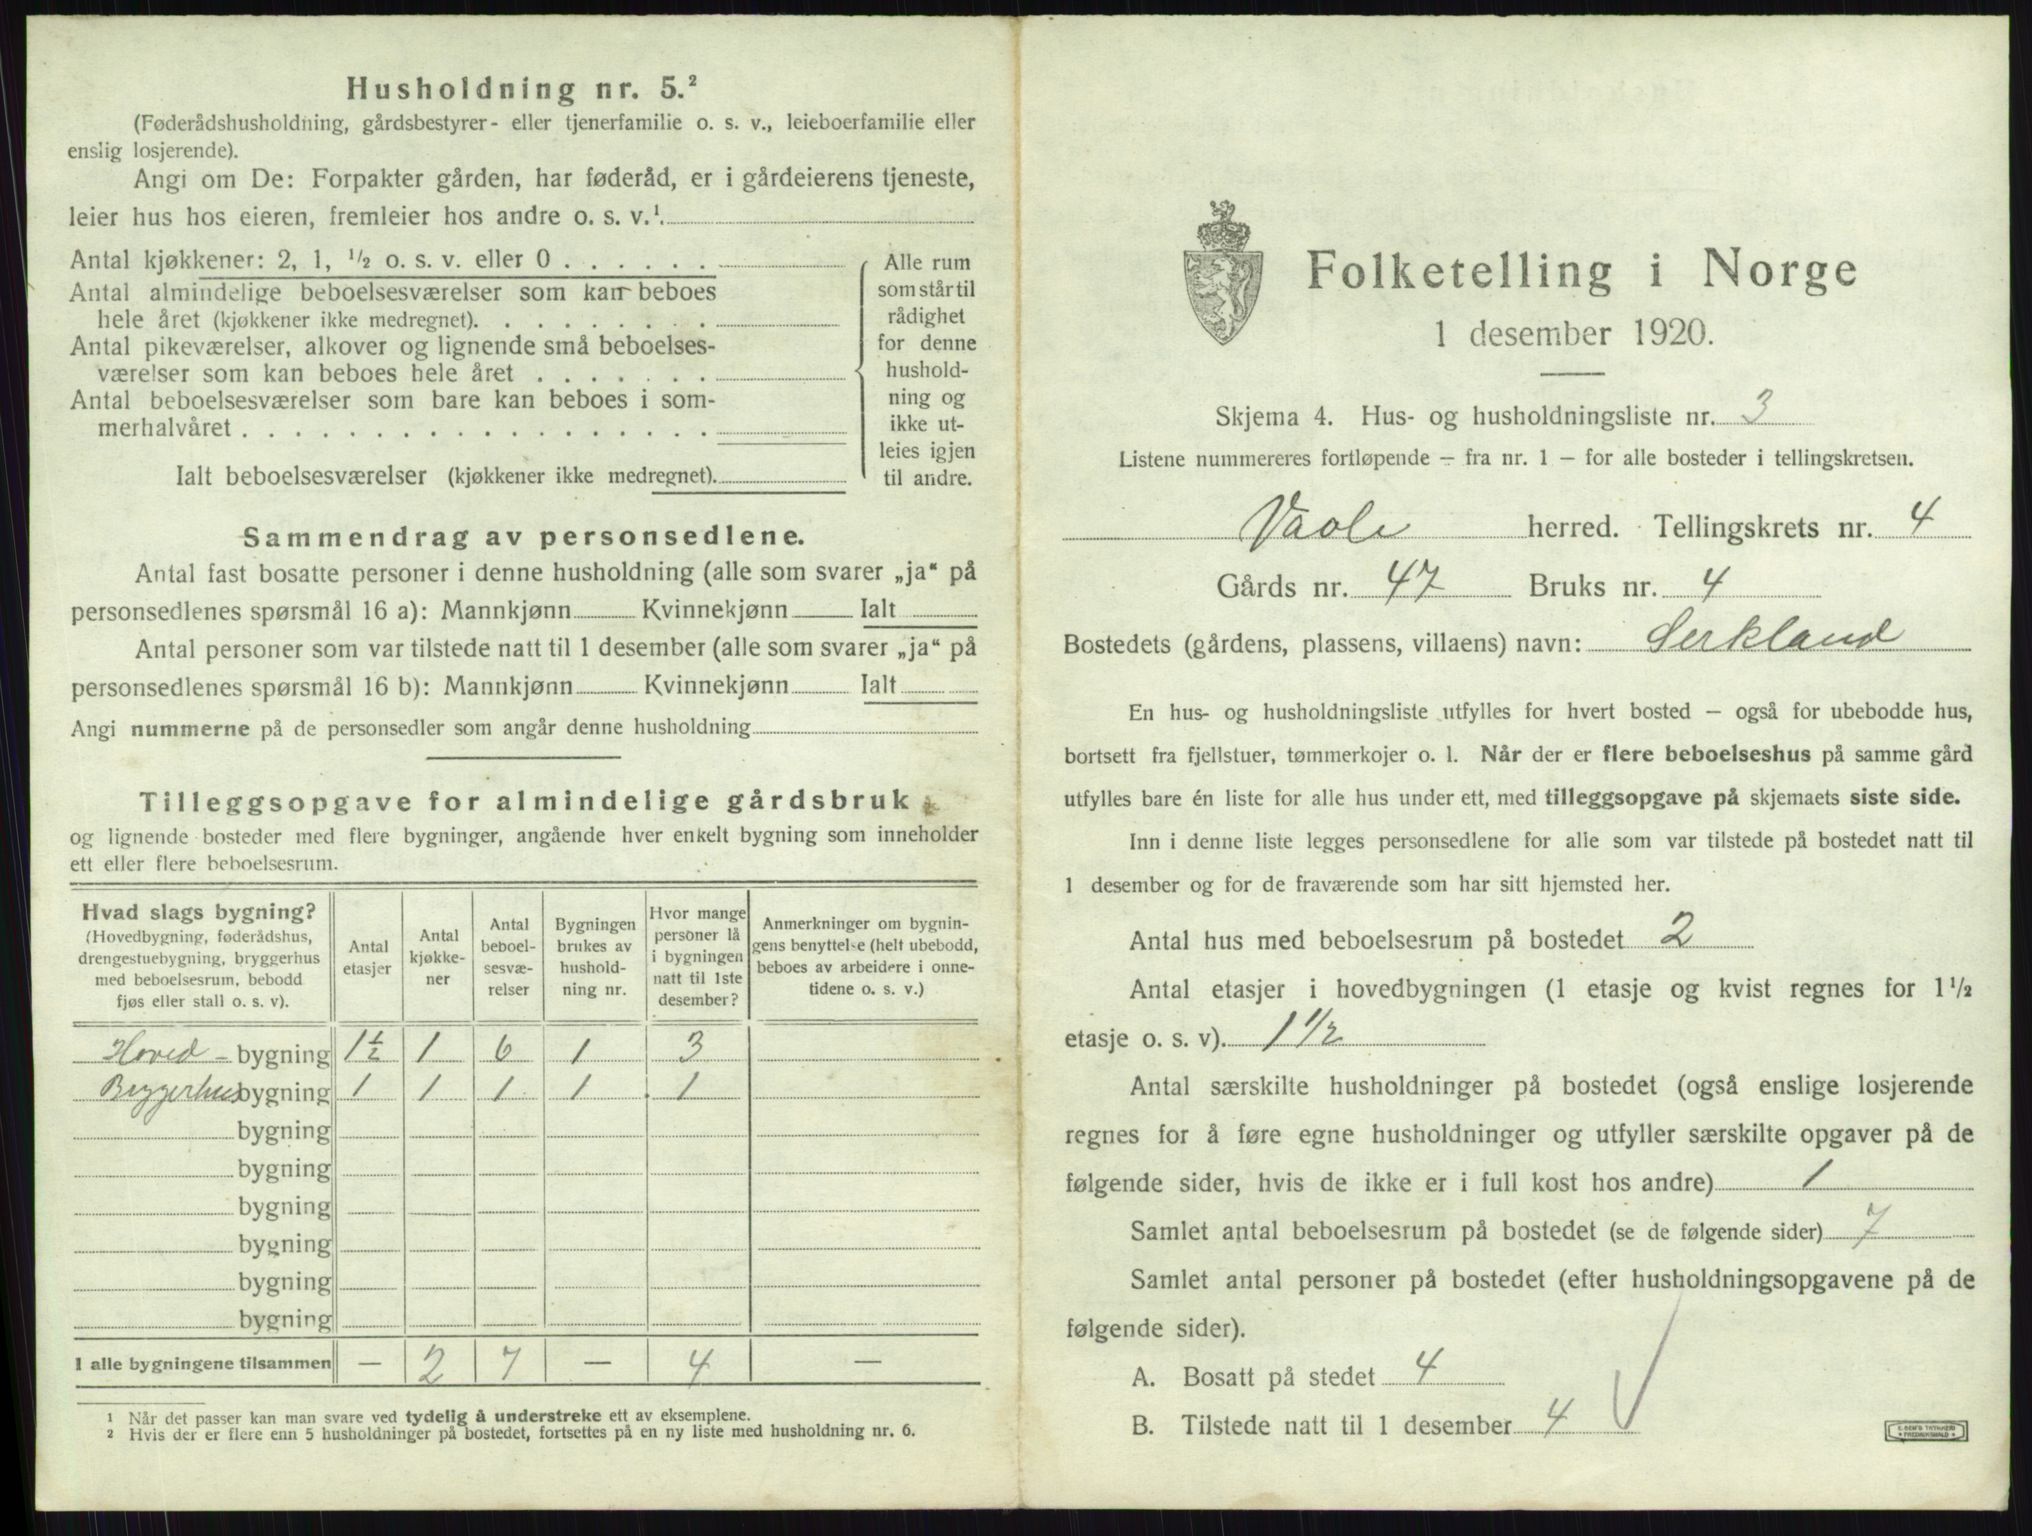 Husholdning nr. 5.²
(Føderådshusholdning, gårdsbestyrer- eller tjenerfamilie o. s. v., leieboerfamilie eller
enslig losjerende).
Angi om De: Forpakter gården, har føderåd, er i gårdeierens tjeneste,
leier hus hos eieren, fremleier hos andre o. s. v.¹.
Antal kjøkkener: 2, 1, ½ o. s. v. eller 0 . . . . . .
Antal almindelige beboelsesværelser som kan beboes
hele året (kjøkkener ikke medregnet). . . . . . . . .
Antal pikeværelser, alkover og lignende små beboelses-
værelser som kan beboes hele året . . . . . . .
Antal beboelsesværelser som bare kan beboes i som-
merhalvåret . . . . . . . . . . . . . . . . . .
Ialt beboelsesværelser (kjøkkener ikke medregnet).
Alle rum
som står til
rådighet
for denne
hushold-
ning og
ikke ut-
leies igjen
til andre.
Sammendrag av personsedlene.
Antal fast bosatte personer i denne husholdning (alle som svarer „ja“ på
personsedlenes spørsmål 16 a): Mannkjønn Kvinnekjønn Ialt
Antal personer som var tilstede natt til 1 desember (alle som svarer „ja“ på
personsedlenes spørsmål 16 b): Mannkjønn Kvinnekjønn Ialt
Angi nummerne på de personsedler som angår denne husholdning
Tilleggsopgave for almindelige gårdsbruk
og lignende bosteder med flere bygninger, angående hver enkelt bygning som inneholder
ett eller flere beboelsesrum.
Hvad slags bygning?
(Hovedbygning, føderådshus,
drengestuebygning, bryggerhus
med beboelsesrum, bebodd
fjøs eller stall o. s. v).
Antal
etasjer
Antal
kjøkke-
ner
Antal
beboel-
sesvæ-
relser
Bygningen
brukes av
hushold-
ning nr.
Hvor mange
personer lå
i bygningen
natt til 1ste
desember?
Anmerkninger om bygnin-
gens benyttelse (helt ubebodd,
beboes av arbeidere i onne-
tidene o. s. v.)
Hoved - bygning 1½ 1 6 1 3
Byggerhus bygning 1 1 1 1 1
bygning
bygning
bygning
bygning
bygning
bygning
I alle bygningene tilsammen — 2 7 — 4 —
¹ Når det passer kan man svare ved tydelig å understreke ett av eksemplene.
² Hvis der er flere enn 5 husholdninger på bostedet, fortsettes på en ny liste med husholdning nr. 6.
Folketelling i Norge
1 desember 1920.
Skjema 4. Hus- og husholdningsliste nr. 3
Listene nummereres fortløpende — fra nr. 1 — for alle bosteder i tellingskretsen.
Vaale herred. Tellingskrets nr. 4
Gårds nr. 47 Bruks nr. 4
Bostedets (gårdens, plassens, villaens) navn: Serkland
En hus- og husholdningsliste utfylles for hvert bosted — også for ubebodde hus,
bortsett fra fjellstuer, tømmerkojer o. l. Når der er flere beboelseshus på samme gård
utfylles bare én liste for alle hus under ett, med tilleggsopgave på skjemaets siste side.
Inn i denne liste legges personsedlene for alle som var tilstede på bostedet natt til
1 desember og for de fraværende som har sitt hjemsted her.
Antal hus med beboelsesrum på bostedet 2
Antal etasjer i hovedbygningen (1 etasje og kvist regnes for 1½
etasje o. s. v). 1½
Antal særskilte husholdninger på bostedet (også enslige losjerende
regnes for å føre egne husholdninger og utfyller særskilte opgaver på de
følgende sider, hvis de ikke er i full kost hos andre) 1
Samlet antal beboelsesrum på bostedet (se de følgende sider) 7
Samlet antal personer på bostedet (efter husholdningsopgavene på de
følgende sider).
A. Bosatt på stedet 4
B. Tilstede natt til 1 desember 4